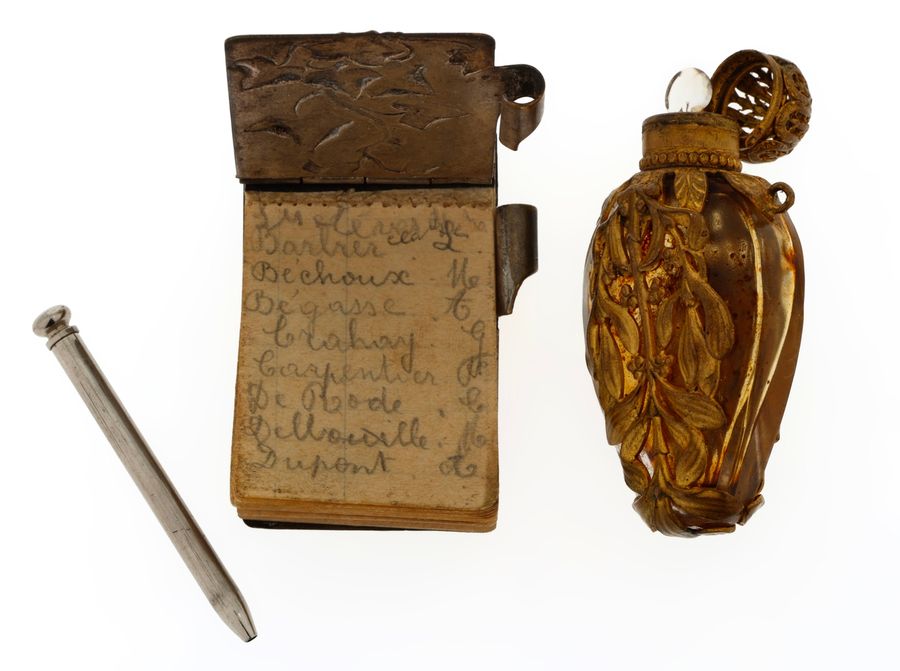 Barbier
Bechoux M
Bégasse A
Crahay. G
Carpentier M
De Rode C
Delloville. M
Dupont A